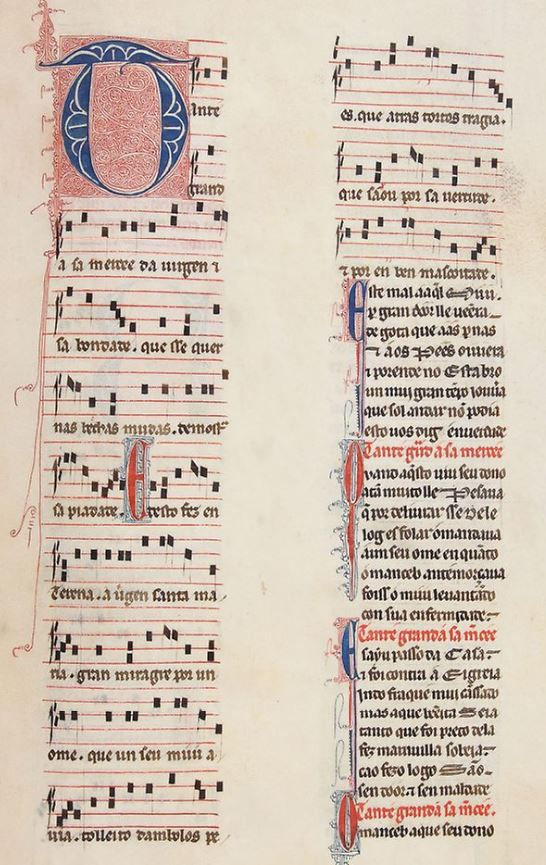 Tante
grand
a sa mercee da uirgen ⁊
sa bondate. que sse quer
nas bechas mudas. demost
sa piadade. E desto fez en
Terena. a uirgen santa ma
ria. gran miragre por un
ome. que un seu mui a
uia. tolleito dambolos pe
es. que atras tortos tragia.
que sãou por sa uertude.
⁊ por en ben mascoitade.
Este mal aaq̃l
per gran door lle uẽera
de gota que aas pernas
⁊ aos pees ouuera
⁊ porende no estabro
un mui gran tẽpo iouuia
que sol andar nõ podia
esto uos dig en uerdade
Tante grãd a sa mercee
Quand aq̃sto uiu seu dono
atã muito lle pesaua
q̃ por dehuiar sse del e
log esfolar o mandaua
a un seu ome en quãto
o manceb ant emorçaua
foiss o mui leuantãdo
con sua enfermidade
Tante granda sa mc̃ee
E sayu passo da casa
⁊ foi contra a eigreia
indo fraque mui cãssado
mas a que bẽeita seia
tanto que foi preto dela
fez marauilla sobeia
ca o fezo logo são
sen door ⁊ sen maldade
Tante granda sa mc̃ee.
O manceb a que seu dono